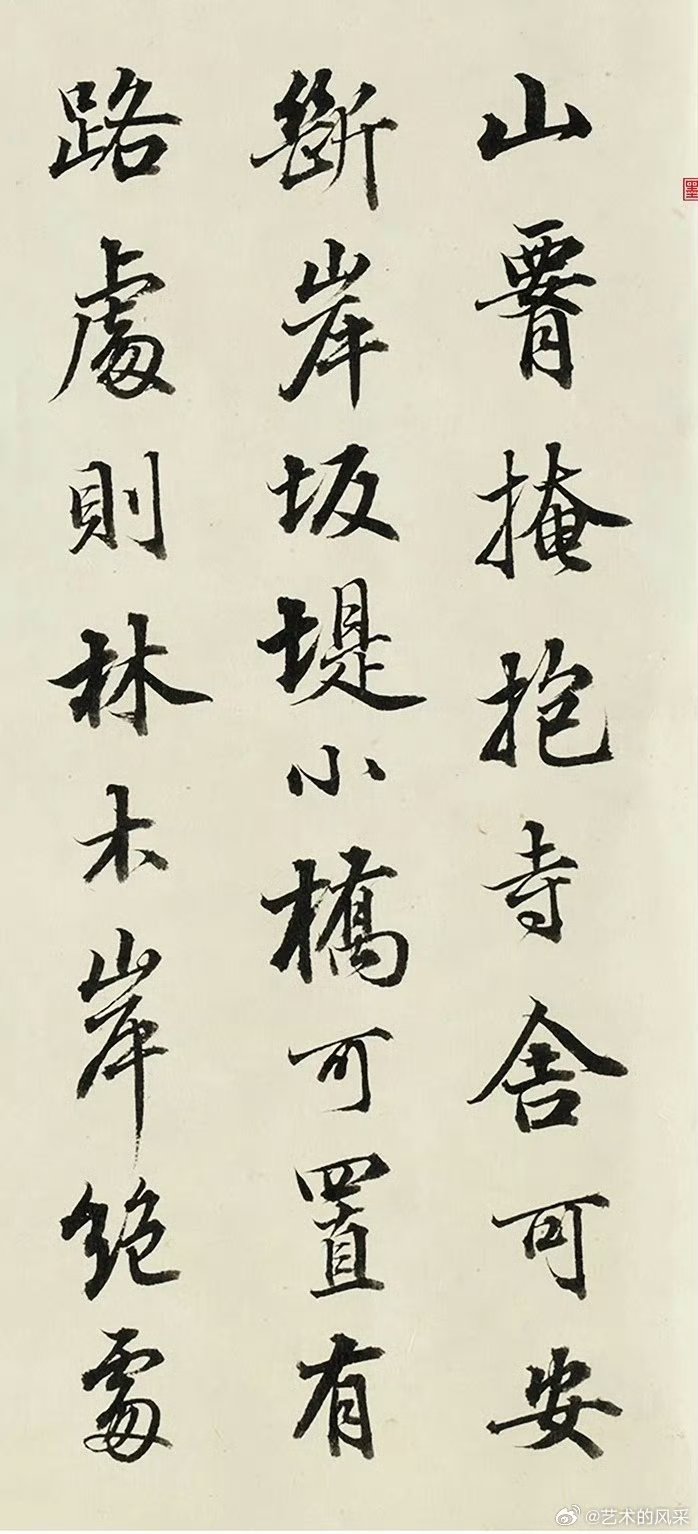 山䙅掩抱寺舍可安
斷岸坂堤小橋可置有
路處則林木岸絶處
@艺术的风采